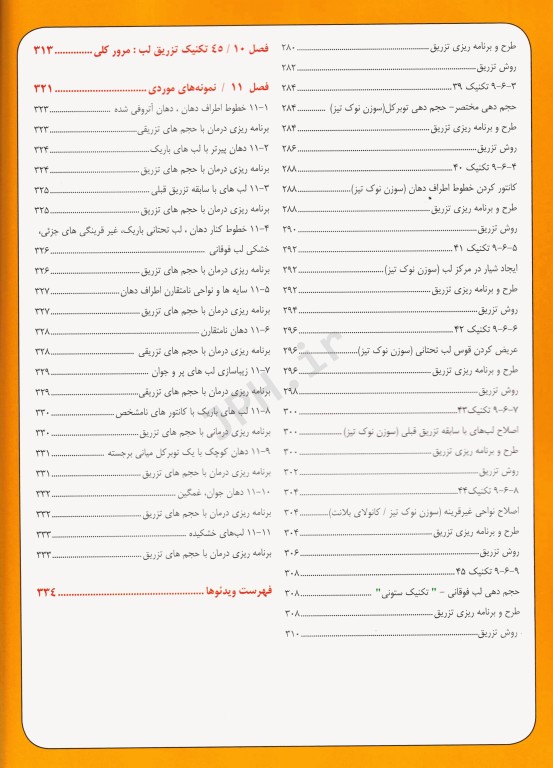 طرح و برنامه ریزی تزریق ۲۸۰
روش تزریق ۲۸۲
۹-۶-۳ تکنیک ۳۹ ۲۸۴
حجم دهی مختصر- حجم دهی توبرکل(سوزن نوک تیز) ۲۸۴
طرح و برنامه ریزی تزریق ۲۸۴
روش تزریق ۲۸۶
۹-۶-۴ تکنیک ۴۰ ۲۸۸
کانتور کردن خطوط اطراف دهان (سوزن نوک تیز) ۲۸۸
طرح و برنامه ریزی تزریق ۲۸۸
روش تزریق ۲۹۰
۹-۶-۵ تکنیک ۴۱ ۲۹۲
ایجاد شیار در مرکز لب (سوزن نوک تیز) ۲۹۲
طرح و برنامه ریزی تزریق ۲۹۲
روش تزریق ۲۹۴
۹-۶-۶ تکنیک ۴۲ ۲۹۶
عریض کردن قوس لب تحتانی (سوزن نوک تیز) ۲۹۶
طرح و برنامه ریزی تزریق ۲۹۶
روش تزریق ۲۹۸
۹-۶-۷ تکنیک۴۳ ۳۰۰
اصلاح لب‌های با سابقه تزریق قبلی (سوزن نوک تیز) ۳۰۰
طرح و برنامه ریزی تزریق ۳۰۰
روش تزریق ۳۰۲
۹-۶-۸ تکنیک۴۴ ۳۰۴
اصلاح نواحی غیرقرینه (سوزن نوک تیز / کانولای بلانت) ۳۰۴
طرح و برنامه ریزی تزریق ۳۰۴
روش تزریق ۳۰۶
۹-۶-۹ تکنیک ۴۵ ۳۰۸
حجم دهی لب فوقانی - " تکنیک ستونی" ۳۰۸
طرح و برنامه ریزی تزریق ۳۰۸
روش تزریق ۳۱۰
فصل ۱۰ / ۴۵ تکنیک تزریق لب : مرور کلی ۳۱۳
فصل ۱۱ / نمونه‌های موردی ۳۲۱
۱۱-۱ خطوط اطراف دهان ، دهان آتروفی شده ۳۲۳
برنامه ریزی درمان با حجم های تزریقی ۳۲۳
۱۱-۲ دهان پیرتر با لب های باریک ۳۲۴
برنامه ریزی درمان با حجم های تزریق ۳۲۴
۱۱-۳ لب های با سابقه تزریق قبلی ۳۲۵
برنامه ریزی درمان با حجم های تزریق ۳۲۵
۱۱-۴ خطوط کنار دهان ، لب تحتانی باریک، غیر قرینگی های جزئی،
خشکی لب فوقانی ۳۲۶
برنامه ریزی درمان با حجم های تزریق ۳۲۶
۱۱-۵ سایه ها و نواحی نامتقارن اطراف دهان ۳۲۷
برنامه ریزی درمان با حجم های تزریق ۳۲۷
۱۱-۶ دهان نامتقارن ۳۲۸
برنامه ریزی درمان با حجم های تزریقی ۳۲۸
۱۱-۷ زیباسازی لب های پر و جوان ۳۲۹
برنامه ریزی درمان با حجم های تزریقی ۳۲۹
۱۱-۸ لب های باریک با کانتور های نامشخص ۳۳۰
برنامه ریزی درمانی با حجم های تزریق ۳۳۰
۱۱-۹ دهان کوچک با یک توبرکل میانی برجسته ۳۳۱
برنامه ریزی درمان با حجم های تزریق ۳۳۱
۱۱-۱۰ دهان جوان، غمگین ۳۳۲
برنامه ریزی درمان با حجم های تزریق ۳۳۲
۱۱-۱۱ لب‌های خشکیده ۳۳۳
برنامه ریزی درمان با حجم های تزریق ۳۳۳
فهرست ویدئوها ۳۳۴
JPH.ir